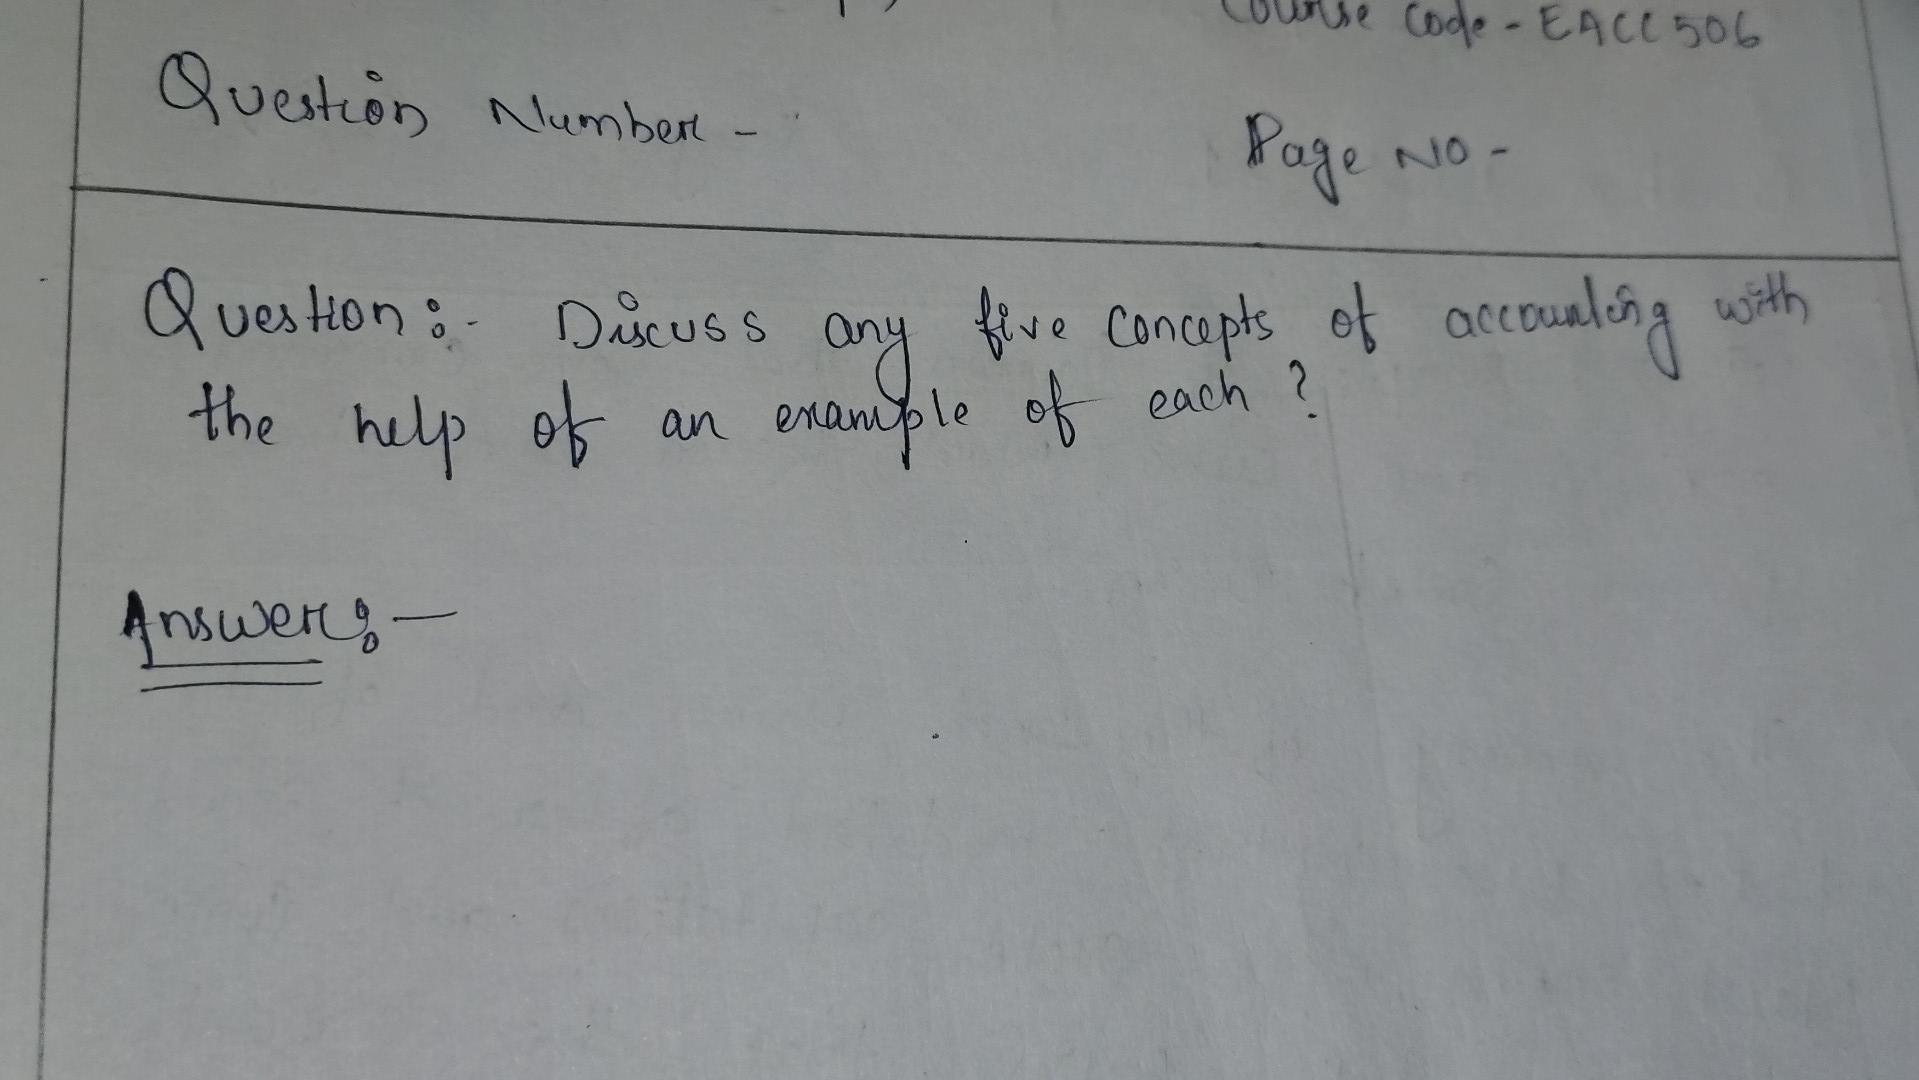 Course Code - EACC506
Question Number -
Page NO -
Question :- Discuss any five concepts of accounting with
the help of an example of each ?
Answer :-